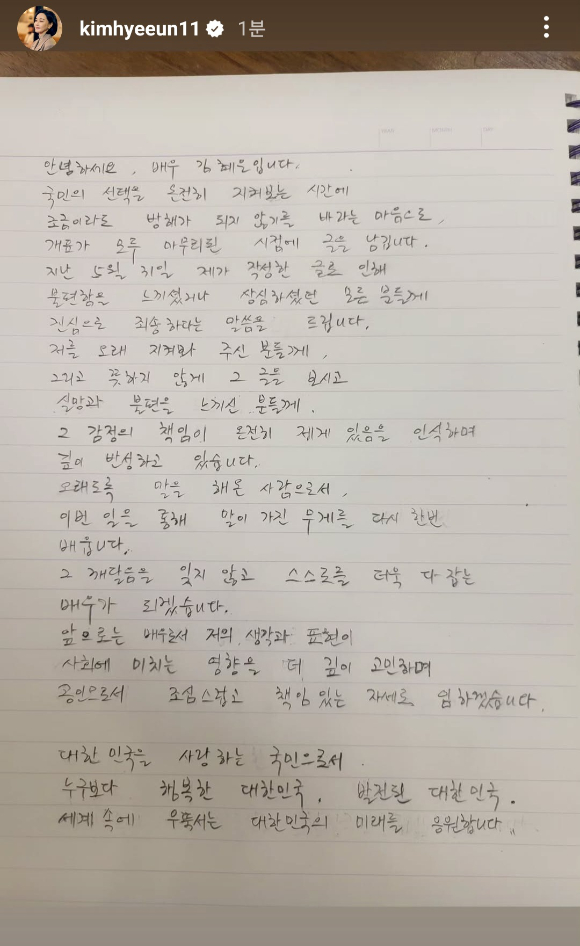 kimhyeeun11 1분
안녕하세요, 배우 김혜은입니다.
국민의 선택을 온전히 지켜보는 시간에
조금이라도 방해가 되지 않기를 바라는 마음으로,
개표가 모두 마무리된 시점에 글을 남깁니다.
지난 5월 31일 제가 작성한 글로 인해
불편함을 느끼셨거나 상심하셨던 모든 분들께
진심으로 죄송하다는 말씀을 드립니다.
저를 오래 지켜봐 주신 분들께,
그리고 뜻하지 않게 그 글을 보시고
실망과 불편을 느끼신 분들께.
그 감정의 책임이 온전히 제게 있음을 인식하며
깊이 반성하고 있습니다.
오래도록 말을 해온 사람으로서,
이번 일을 통해 말이 가진 무게를 다시 한번
배웁니다.
그 깨달음을 잊지 않고 스스로를 더욱 다잡는
배우가 되겠습니다.
앞으로는 배우로서 저의 생각과 표현이
사회에 미치는 영향을 더 깊이 고민하며
공인으로서 조심스럽고 책임 있는 자세로 임하겠습니다.
대한민국을 사랑하는 국민으로서.
누구보다 행복한 대한민국, 발전된 대한민국.
세계 속에 우뚝서는 대한민국의 미래를 응원합니다.